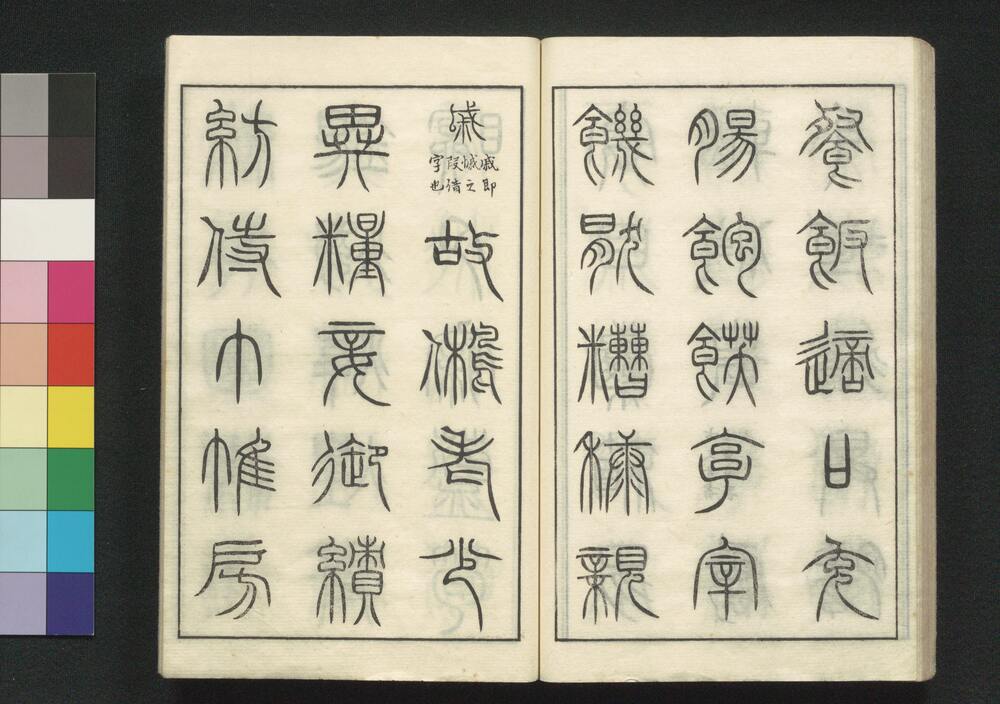 餐飯適口充
腸飽飫亨宰
饑猒糟穅親
戚
戚即
慽之
叚借
字也
故舊老少
異糧妾御績
紡侍巾帷房